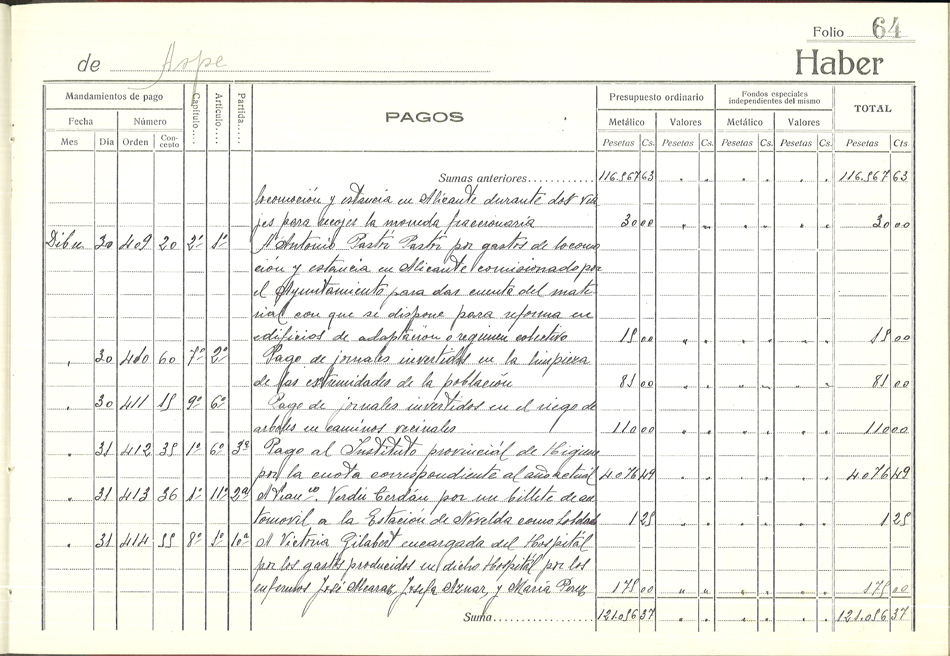 Folio 64
de Aspe Haber
Mandamientos de pago Capítulo.... Artículo.... Partida.... PAGOS Presupuesto ordinario Fondos especiales independientes del mismo TOTAL
Fecha Número Metálico Valores Metálico Valores
Mes Día Orden Concepto Pesetas Cs. Pesetas Cs. Pesetas Cs. Pesetas Cs. Pesetas Cts.
Sumas anteriores............ 116.567 63 " " " " " " 116.567 63
locomoción y estancia en Alicante durante dos via
jes para recojes la moneda fraccionaria 30 00 " " " " " " 30 00
Dibre 30 409 20 2º 1º A Antonio Pastór Pastór por gastos de locomo
ción y estancia en Alicante comisionado por
el Ayuntamiento para dar cuenta del mate
rial con que se dispone para reforma en
edificios de adaptación o regimen colectivo 15 00 " " " " " " 15 00
" 30 410 60 7º 2º Pago de jornales invertidos en la limpieza
de las extremidades de la población 81 00 " " " " " " 81 00
" 30 411 15 9º 6º Pago de jornales invertidos en el riego de
arboles en caminos vecinales 110 00 " " " " " " 110 00
" 31 412 35 1º 6º 3ª Pago al Instituto provincial de Higiene
por la cuota correspondiente al año actual 4.076 49 " " " " " " 4.076 49
" 31 413 36 1º 11º 2ª A Verdú Cerdán por un billete de au
tomovil a la Estación de Novelda como soldado 1 25 " " " " " " 1 25
" 31 414 55 8º 1º 10ª A Victoria Gilabert encargada del Hospitál
por los gastos producidos en dicho Hospitál por los
enfermos José Alcaraz, Josefa Aznar, y María Perez 175 00 " " " " " " 175 00
Suma.................. 121.056 37 " " " " " " 121.056 37